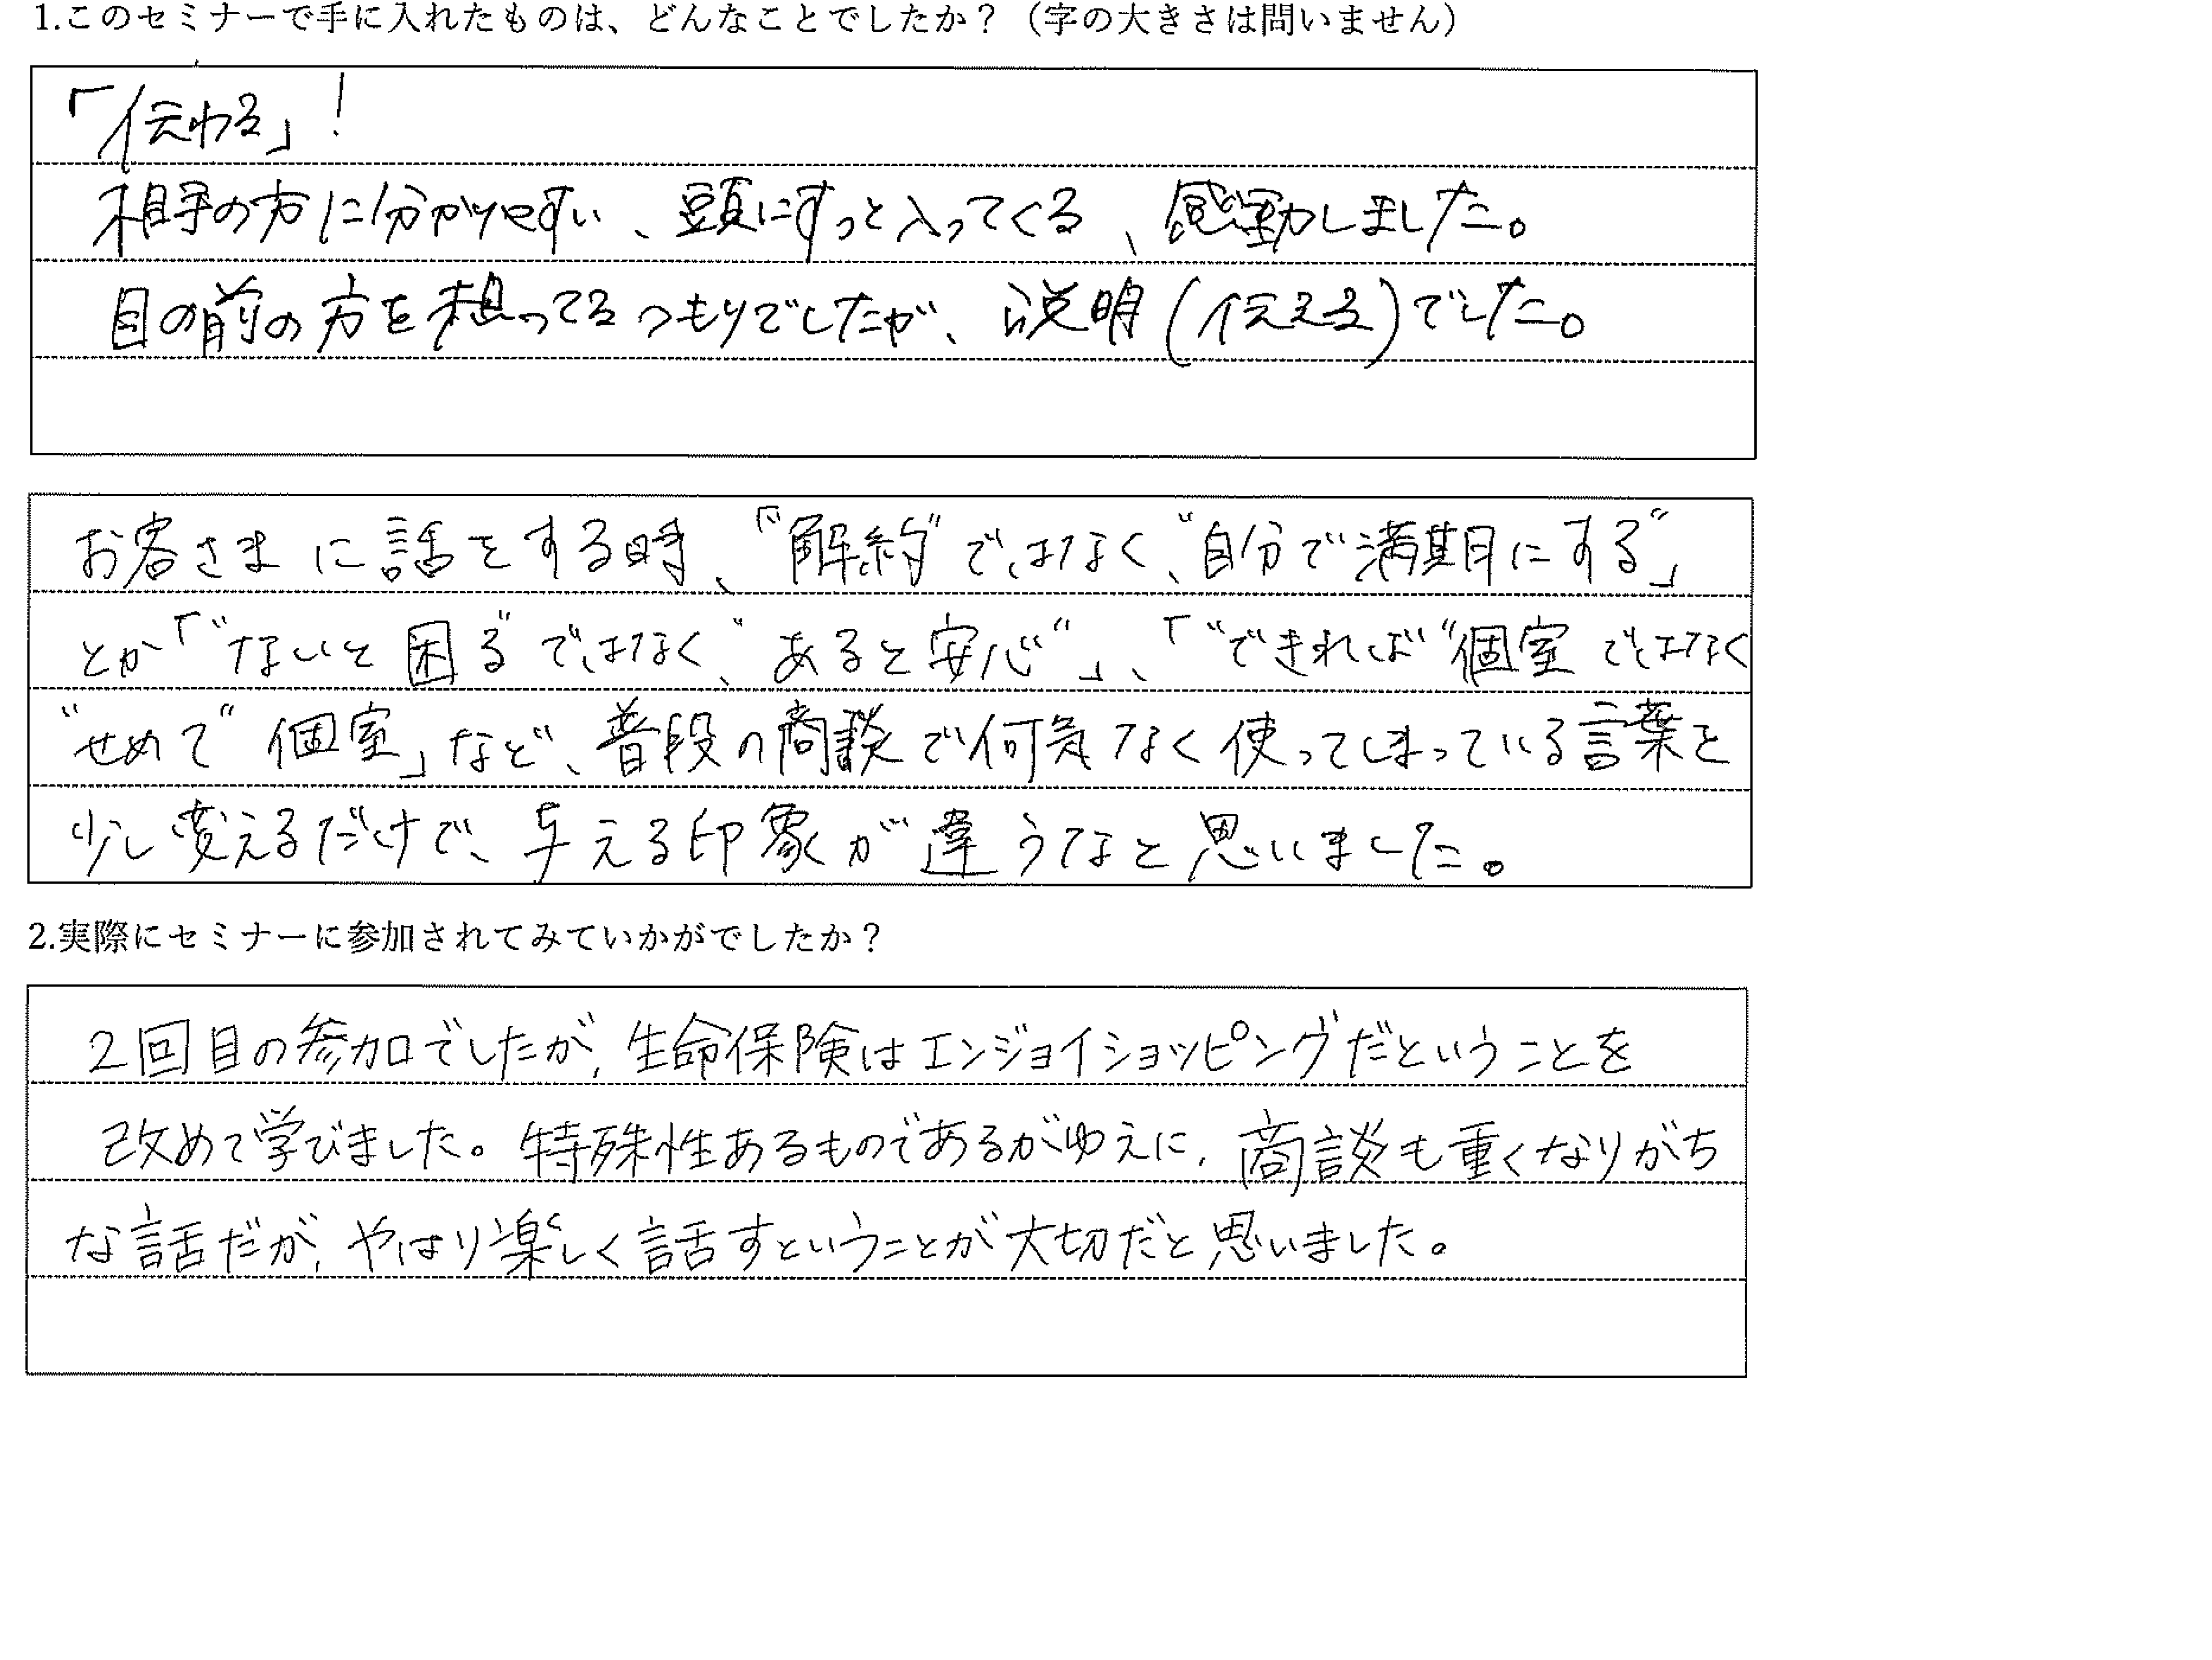 1.このセミナーで手に入れたものは、どんなことでしたか？（字の大きさは問いません）
「伝わる」!
相手の方に分かりやすい、頭にすっと入ってくる、感動しました。
目の前の方を想ってるつもりでしたが、説明(伝える)でした。
お客さまに話をする時、「“解約”ではなく、“自分で満期にする”」
とか「“ないと困る”ではなく、“あると安心”」、「“できれば”個室ではなく
“せめて”個室」など、普段の商談で何気なく使ってしまっている言葉を
少し変えるだけで、与える印象が違うなと思いました。
2.実際にセミナーに参加されてみていかがでしたか？
2回目の参加でしたが，生命保険はエンジョイショッピングだということを
改めて学びました。特殊性あるものであるがゆえに，商談も重くなりがち
な話だが，やはり楽しく話すということが大切だと思いました。